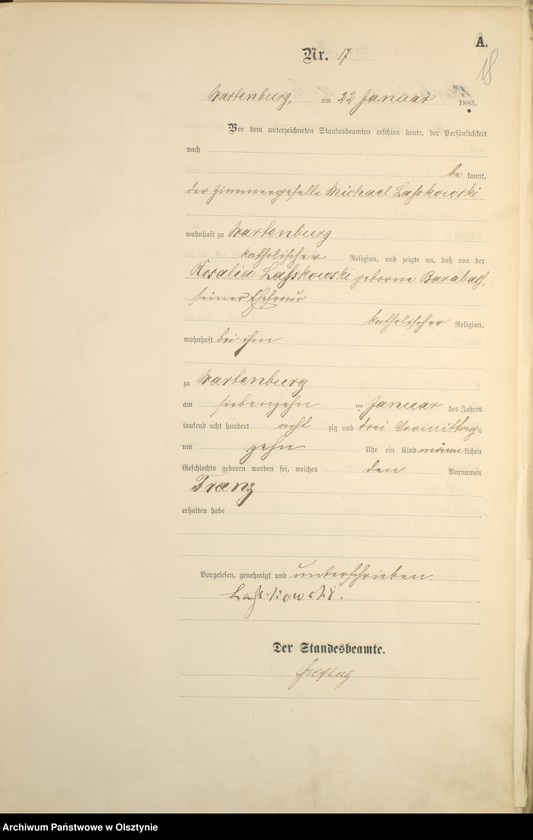 A.
18
Nr. 17
Wartenburg, am 22 Januar 1883.
Vor dem unterzeichneten Standesbeamten erschien heute, der Persönlichkeit
nach
bekannt,
der Zimmergeselle Michael Laßkowski
wohnhaft zu Wartenburg
katholischer Religion, und zeigte an, daß von der
Rosalia Laßkowski geborene Barabasch,
seiner Ehefrau
katholischer Religion,
wohnhaft bei ihm
zu Wartenburg
am siebenzehn ten Januar des Jahres
tausend acht hundert acht zig und drei Vormittags
um zehn Uhr ein Kind männlichen
Geschlechts geboren worden sei, welches den Vornamen
Franz
erhalten habe
Vorgelesen, genehmigt und unterschrieben.
Laßkowski.
Der Standesbeamte.
Archiwum Państwowe w Olsztynie